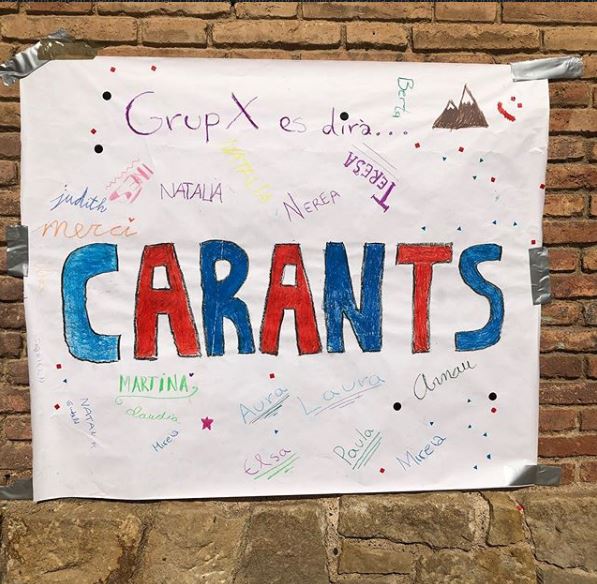 Berta
GrupX es dirà...
INES
NATALIA
TERESA
judith
NATALIA
NEREA
merci
CARANTS
MARTINA
claudia
Aura
Laura
Arnau
NATALIA
Mireia
Elsa
Paula
Mireia